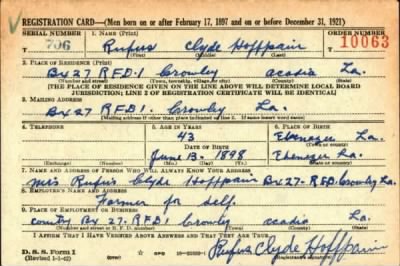 REGISTRATION CARD—(Men born on or after February 17, 1897 and on or before December 31, 1921)
SERIAL NUMBER 1. NAME (Print) ORDER NUMBER
706 Rufus Clyde Hoffpauir 10063
(First) (Middle) (Last)
2. PLACE OF RESIDENCE (Print)
Bx 27 R.F.D. 1 Crowley Acadia La.
(Number and street) (Town, township, village, or city) (County) (State)
[THE PLACE OF RESIDENCE GIVEN ON THE LINE ABOVE WILL DETERMINE LOCAL BOARD
JURISDICTION; LINE 2 OF REGISTRATION CERTIFICATE WILL BE IDENTICAL]
3. MAILING ADDRESS
Bx 27 RFD 1. Crowley La.
[Mailing address if other than place indicated on line 2. If same insert word same]
4. TELEPHONE 5. AGE IN YEARS 6. PLACE OF BIRTH
43 Ebenezer
DATE OF BIRTH (Town or county)
June 13. 1898 Ebenezer La.
(Exchange) (Number) (Mo.) (Day) (Yr.) (State or country)
7. NAME AND ADDRESS OF PERSON WHO WILL ALWAYS KNOW YOUR ADDRESS
Mrs Rufus Clyde Hoffpauir Bx 27- RFD Crowley La.
8. EMPLOYER'S NAME AND ADDRESS
Farmer for self.
9. PLACE OF EMPLOYMENT OR BUSINESS
country Bx 27. RFD 1 Crowley Acadia La.
(Number and street or R. F. D. number) (Town) (County) (State)
I AFFIRM THAT I HAVE VERIFIED ABOVE ANSWERS AND THAT THEY ARE TRUE.
D. S. S. Form 1
(Revised 1-1-42) Rufus Clyde Hoffpauir
(Registrant's signature)